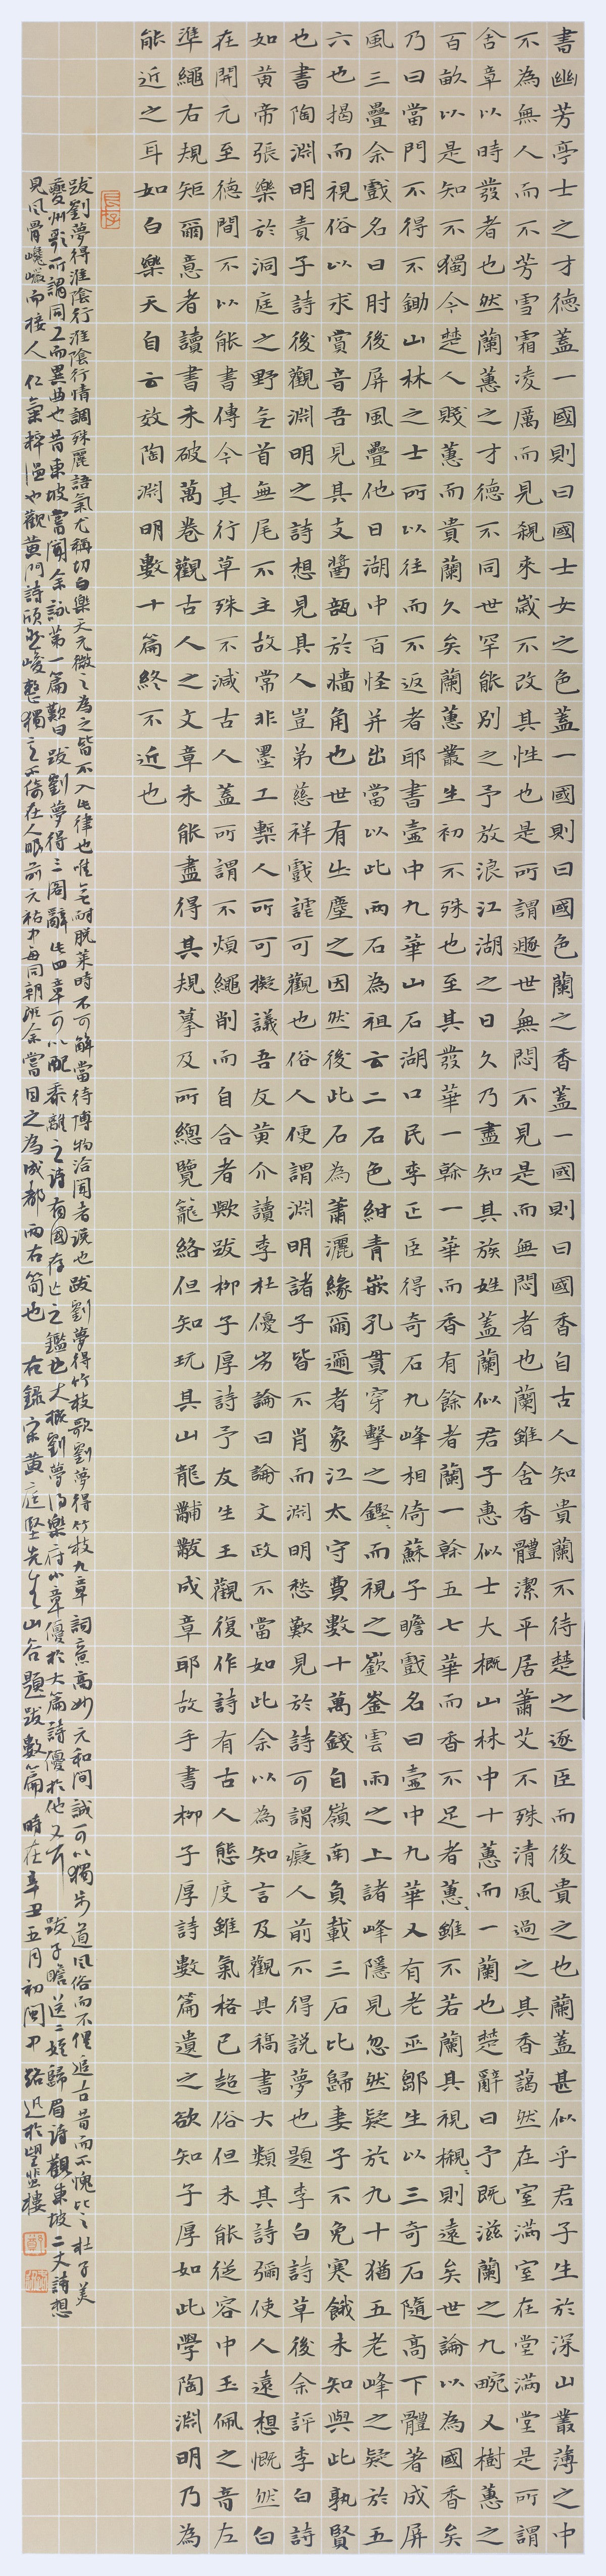 書幽芳亭士之才德蓋一國則曰國士女之色蓋一國則曰國色蘭之香蓋一國則曰國香自古人知貴蘭不待楚之逐臣而後貴之也蘭蓋甚似乎君子生於深山叢薄之中
不為無人而不芳雪霜凌厲而見親來歲不改其性也是所謂遯世無悶不見是而無悶者也蘭雖含香體潔平居蕭艾不殊清風過之其香藹然在室滿室在堂滿堂是所謂
含章以時發者也然蘭蕙之才德不同世罕能別之予放浪江湖之日久乃盡知其族姓蓋蘭似君子蕙似士大概山林中十蕙而一蘭也楚辭曰予既滋蘭之九畹又樹蕙之
百畝以是知不獨今楚人賤蕙而貴蘭久矣蘭蕙叢生初不殊也至其發華一榦一華而香有餘者蘭一榦五七華而香不足者蕙雖不若蘭其視椒則遠矣世論以為國香矣
乃曰當門不得不鋤山林之士所以往而不返者耶書壺中九華山石湖口民李正臣得奇石九峰相倚蘇子瞻戲名曰壺中九華又有老巫鄒生以三奇石隨高下體著成屏
風三疊余戲名曰肘後屏風疊他日湖中百怪并出當以此兩石為祖云二石色紺青嵌孔貫穿擊之鏗鏗而視之嶔崟雲雨之上諸峰隱見忽然疑於九十猶五老峰之疑於五
六也揭而視俗以求賞音吾見其支醬瓿於墻角也世有出塵之因然後此石為蕭灑緣爾邇者象江太守費數十萬錢自嶺南負載三石比歸妻子不免寒餓未知與此孰賢
也書陶淵明責子詩後觀淵明之詩想見其人豈弟慈祥戲謔可觀也俗人便謂淵明諸子皆不肖而淵明愁歎見於詩可謂癡人前不得說夢也題李白詩草後余評李白詩
如黃帝張樂於洞庭之野無首無尾不主故常非墨工槧人所可擬議吾友黃介讀李杜優劣論曰論文政不當如此余以為知言及觀其稿書大類其詩彌使人遠想慨然白
在開元至德間不以能書傳今其行草殊不減古人蓋所謂不煩繩削而自合者歟跋柳子厚詩予友生王觀復作詩有古人態度雖氣格已超俗但未能從容中玉佩之音左
準繩右規矩爾意者讀書未破萬卷觀古人之文章未能盡得其規摹及所總覽籠絡但知玩其山龍黼黻成章耶故手書柳子厚詩數篇遺之欲知子厚如此學陶淵明乃為
能近之耳如白樂天自云效陶淵明數十篇終不近也
跋劉夢得淮陰行淮陰行情調殊麗語氣尤穩切白樂天元微之為之皆不入此律也唯無耐脫菜時不可解當待博物洽聞者說也跋劉夢得竹枝歌劉夢得竹枝九章詞意高妙元和間誠可以獨步道風俗而不俚追古昔而不愧比之杜子美
夔州歌所謂同工而異曲也昔東坡嘗聞余詠第一篇歎曰跋劉夢得三閣辭此四章可以配黍離之詩有國存亡之鑑也大概劉夢得樂府小章優於大篇詩優於他文耳跋子瞻送二姪歸眉詩觀東坡二丈詩想
見風骨巉巖而接人仁氣粹溫也觀黃門詩頎然峻整獨立不倚在人眼前元祐中每同朝班余嘗目之為成都兩石筍也右錄宋黃庭堅先生山谷題跋數篇時在辛丑五月初